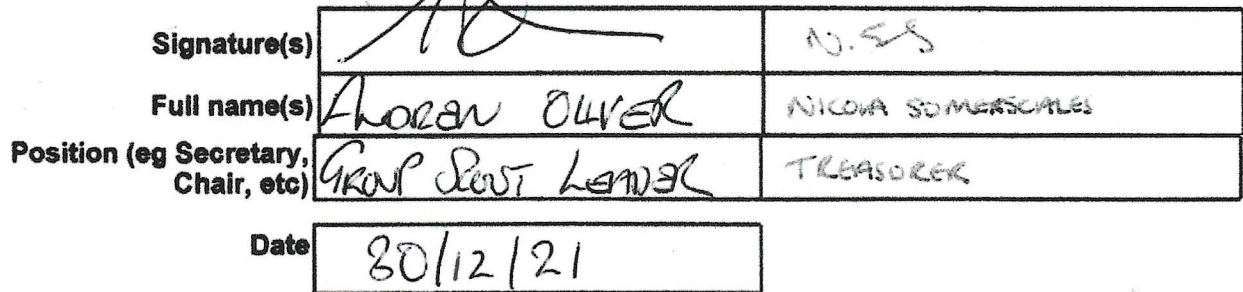 Signature(s) N. ES
Full name(s) OLIVER NICOLA SOMERSCALES
Position (eg Secretary, Chair, etc) GROUP SCOUT LEADER TREASURER
Date 30/12/21